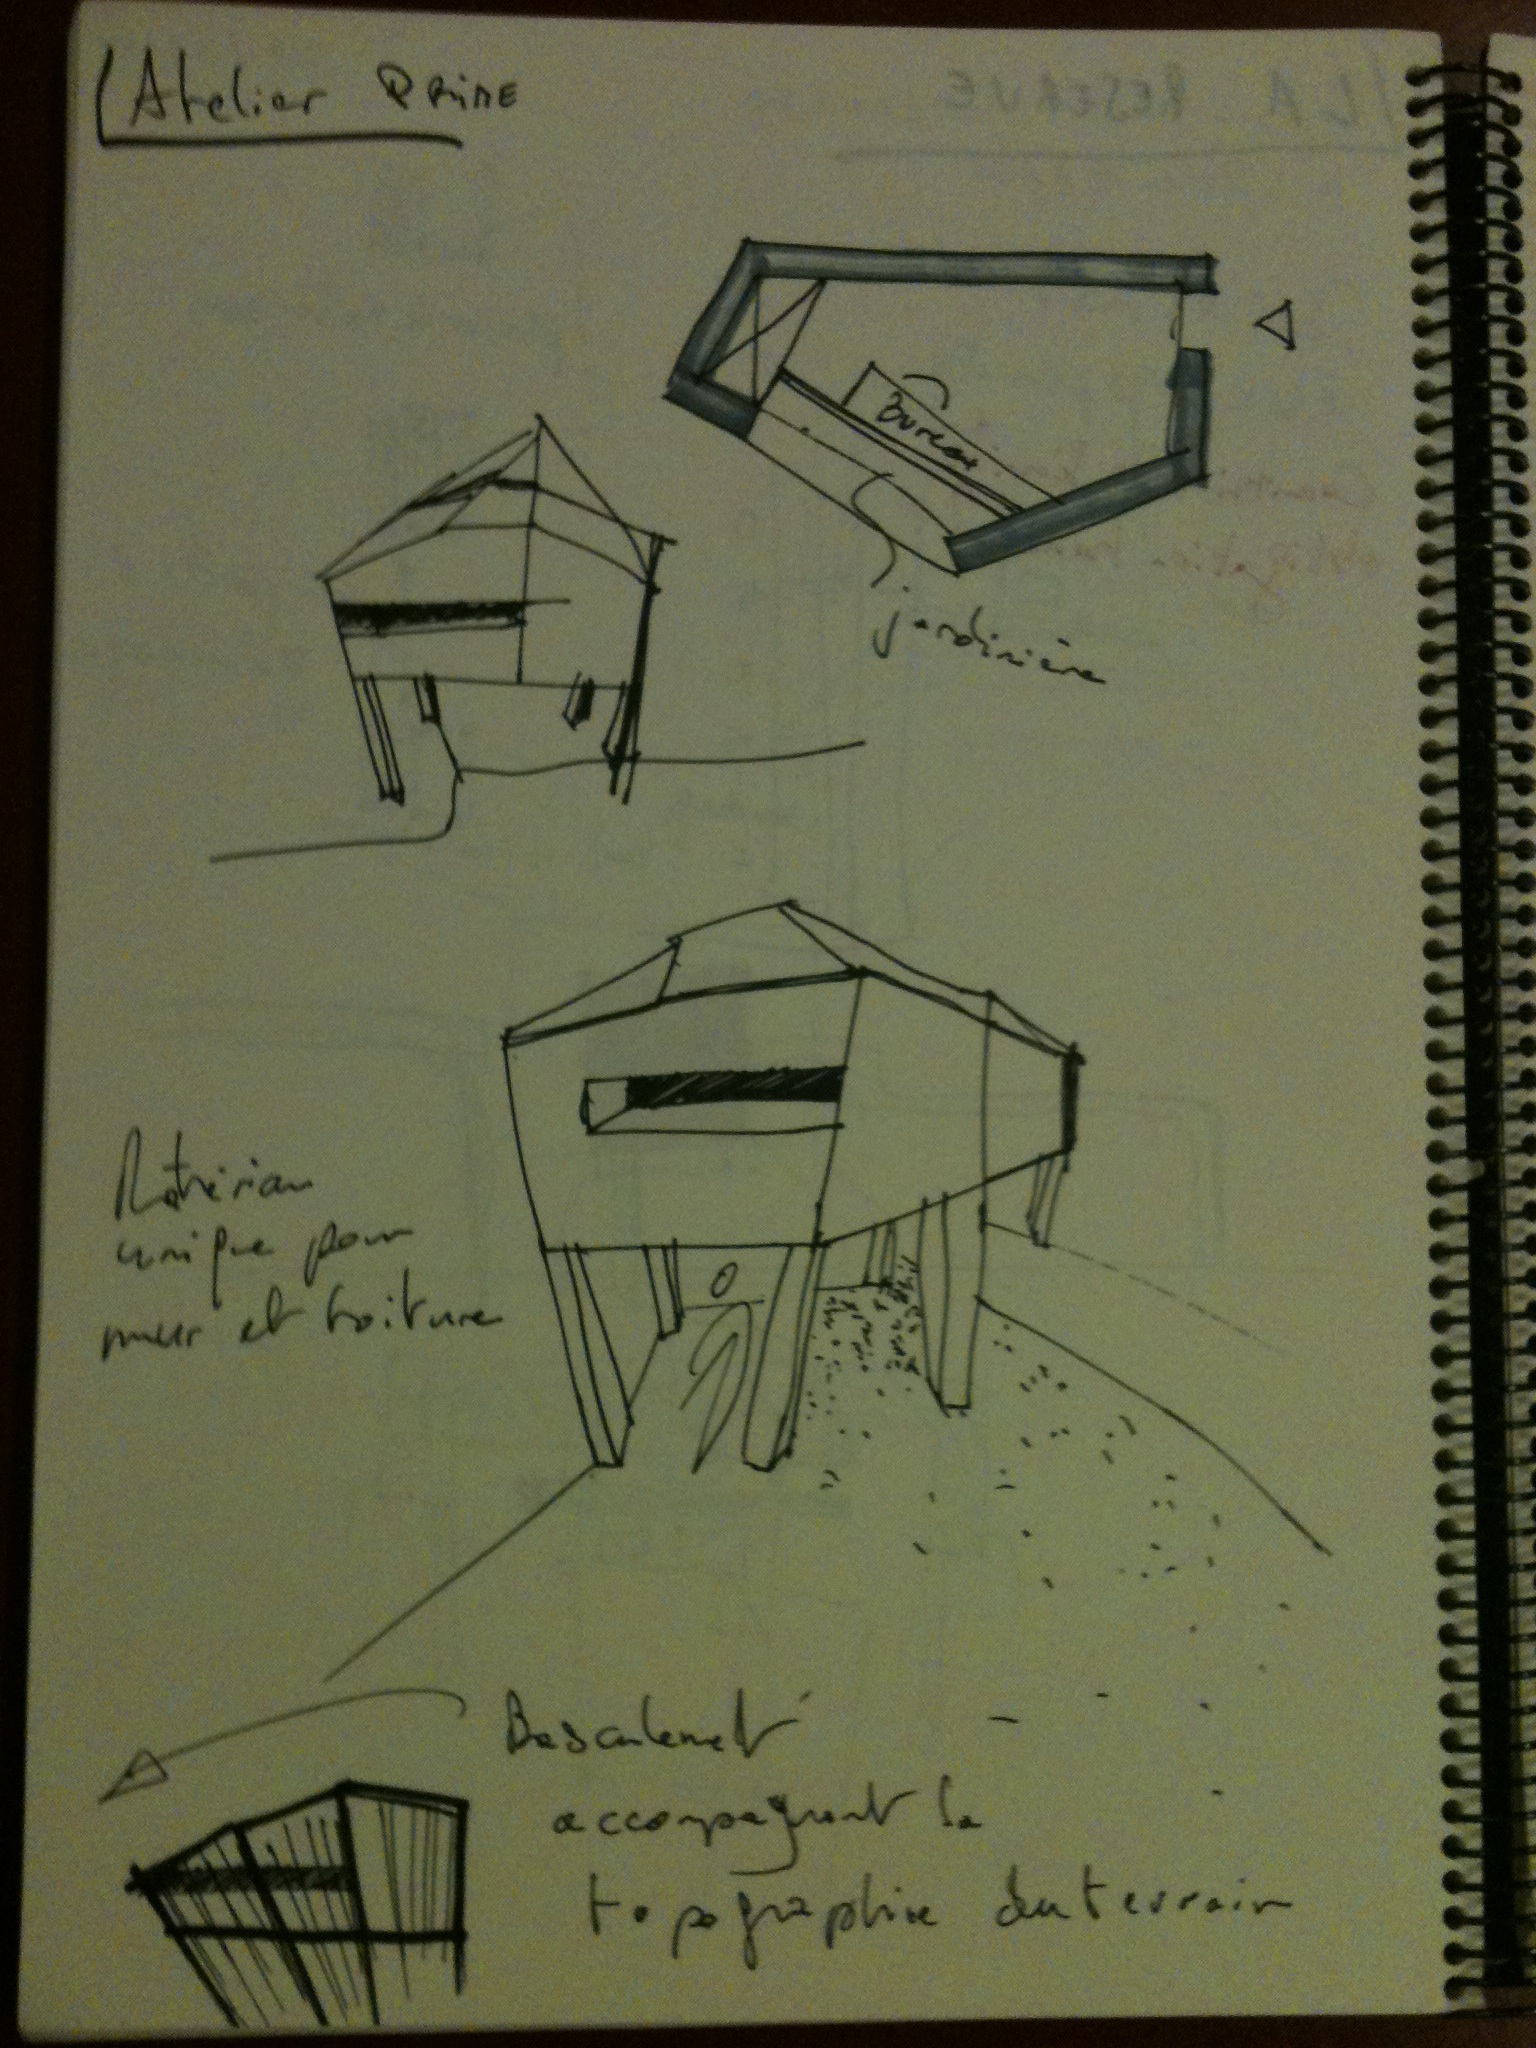 Atelier
Bureau
jardinière
Matériau
unique pour
mur et toiture
Basculement
accompagnant la
topographie du terrain
LA RESERVE